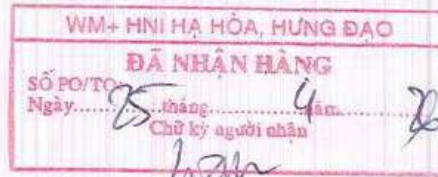 WM+ HNI HẠ HÒA, HƯNG ĐẠO
ĐÃ NHẬN HÀNG
SỐ PO/TO:
Ngày 25 tháng 4 năm
Chữ ký người nhận